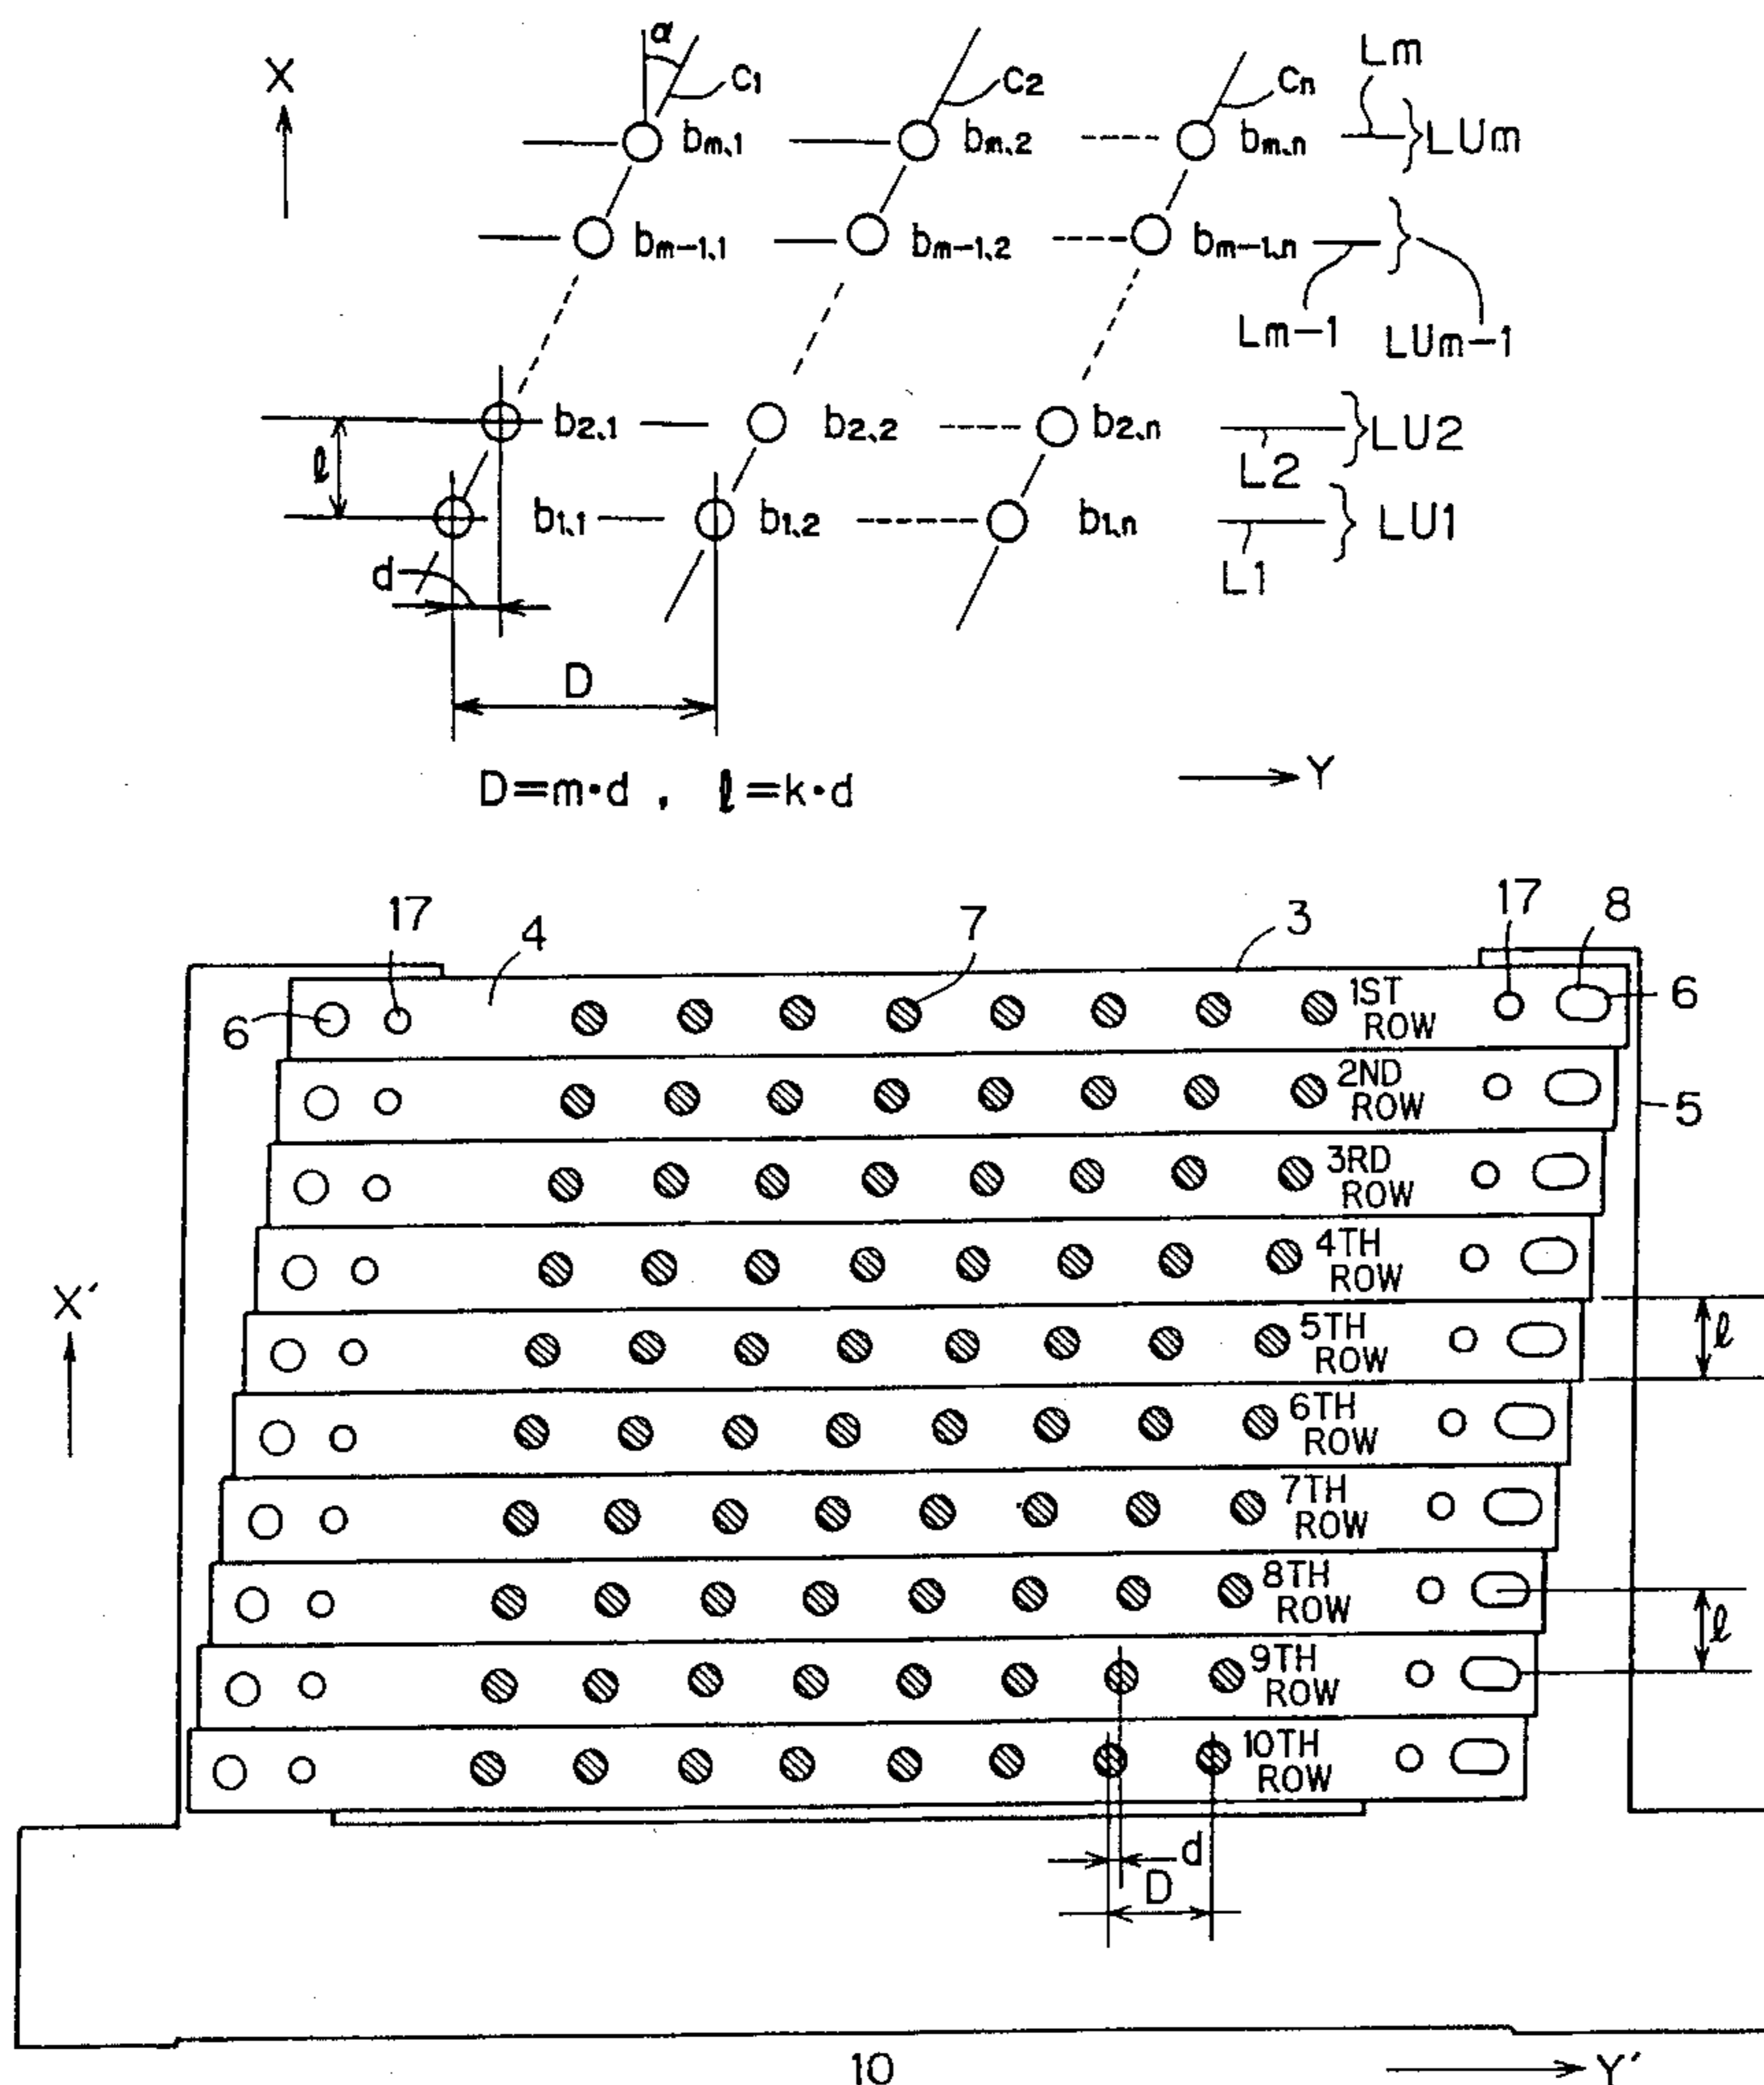 X α C1 C2 Cn Lm
bm,1 bm,2 bm,n LUm
bm-1,1 bm-1,2 bm-1,n
Lm-1 LUm-1
b2,1 b2,2 b2,n LU2
ℓ L2
b1,1 b1,2 b1,n LU1
d L1
D
D=m·d , ℓ=k·d Y
17 4 7 3 17 8
6 1ST 6
ROW
2ND
ROW 5
3RD
ROW
4TH
ROW
X′ 5TH ℓ
ROW
6TH
ROW
7TH
ROW
8TH
ROW ℓ
9TH
ROW
10TH
ROW
d
D
10 Y′